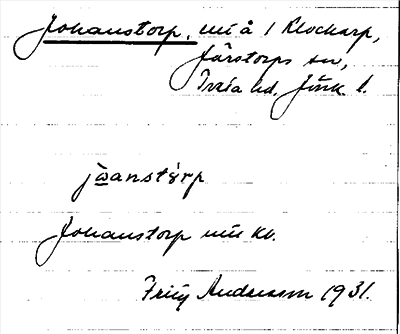 Johanstorp, uu å 1 Klockarp,
Järstorps sn,
Tveta hd. Jönk. l.
jὼanstórp
Johanstorp uu kv.
Fritz Andersson 1931.